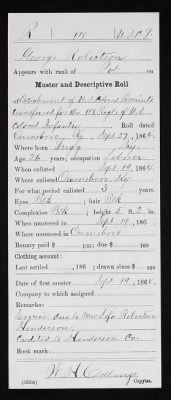 R 118 U.S.C.T.
George Robertson
Appears with rank of Pvt. on
Muster and Descriptive Roll
of Detachment of U.S. Colored Recruits
transferred for the 118 Regt. of U.S.
Colored Infantry Roll dated
Owensboro Ky Sept 27, 1864.
Where born Ky.
Age 26 years; occupation Laborer
When enlisted Sept 19, 1864.
Where enlisted Owensboro Ky
For what period enlisted 3 years.
Eyes Blk; hair Blk
Complexion Blk; height 5 ft. 2 in.
When mustered in Sept 19, 186
Where mustered in Owensboro
Bounty paid $ 100; due $ 100
Clothing account:
Last settled , 186 ; drawn since $ 100
Due soldier $ 100; due U.S. $ 100
Date of first muster Sept 19, 1864.
Company to which assigned
Remarks:
Robertson
Henderson
Credited to Henderson Co.
Book mark:
W. H. Collings
(336a) Copyist.